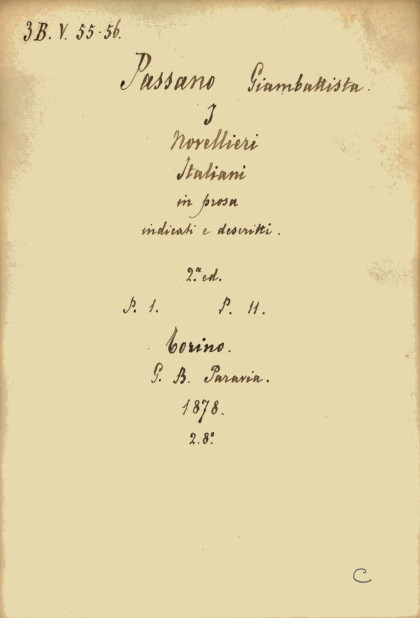 3B. V. 55-56.
Passano Giambattista.
I
Novellieri
Italiani
in prosa
indicati e descritti.
2.ª ed.
P. 1. P. 11.
Torino.
G. B. Paravia.
1878.
2.8º
C